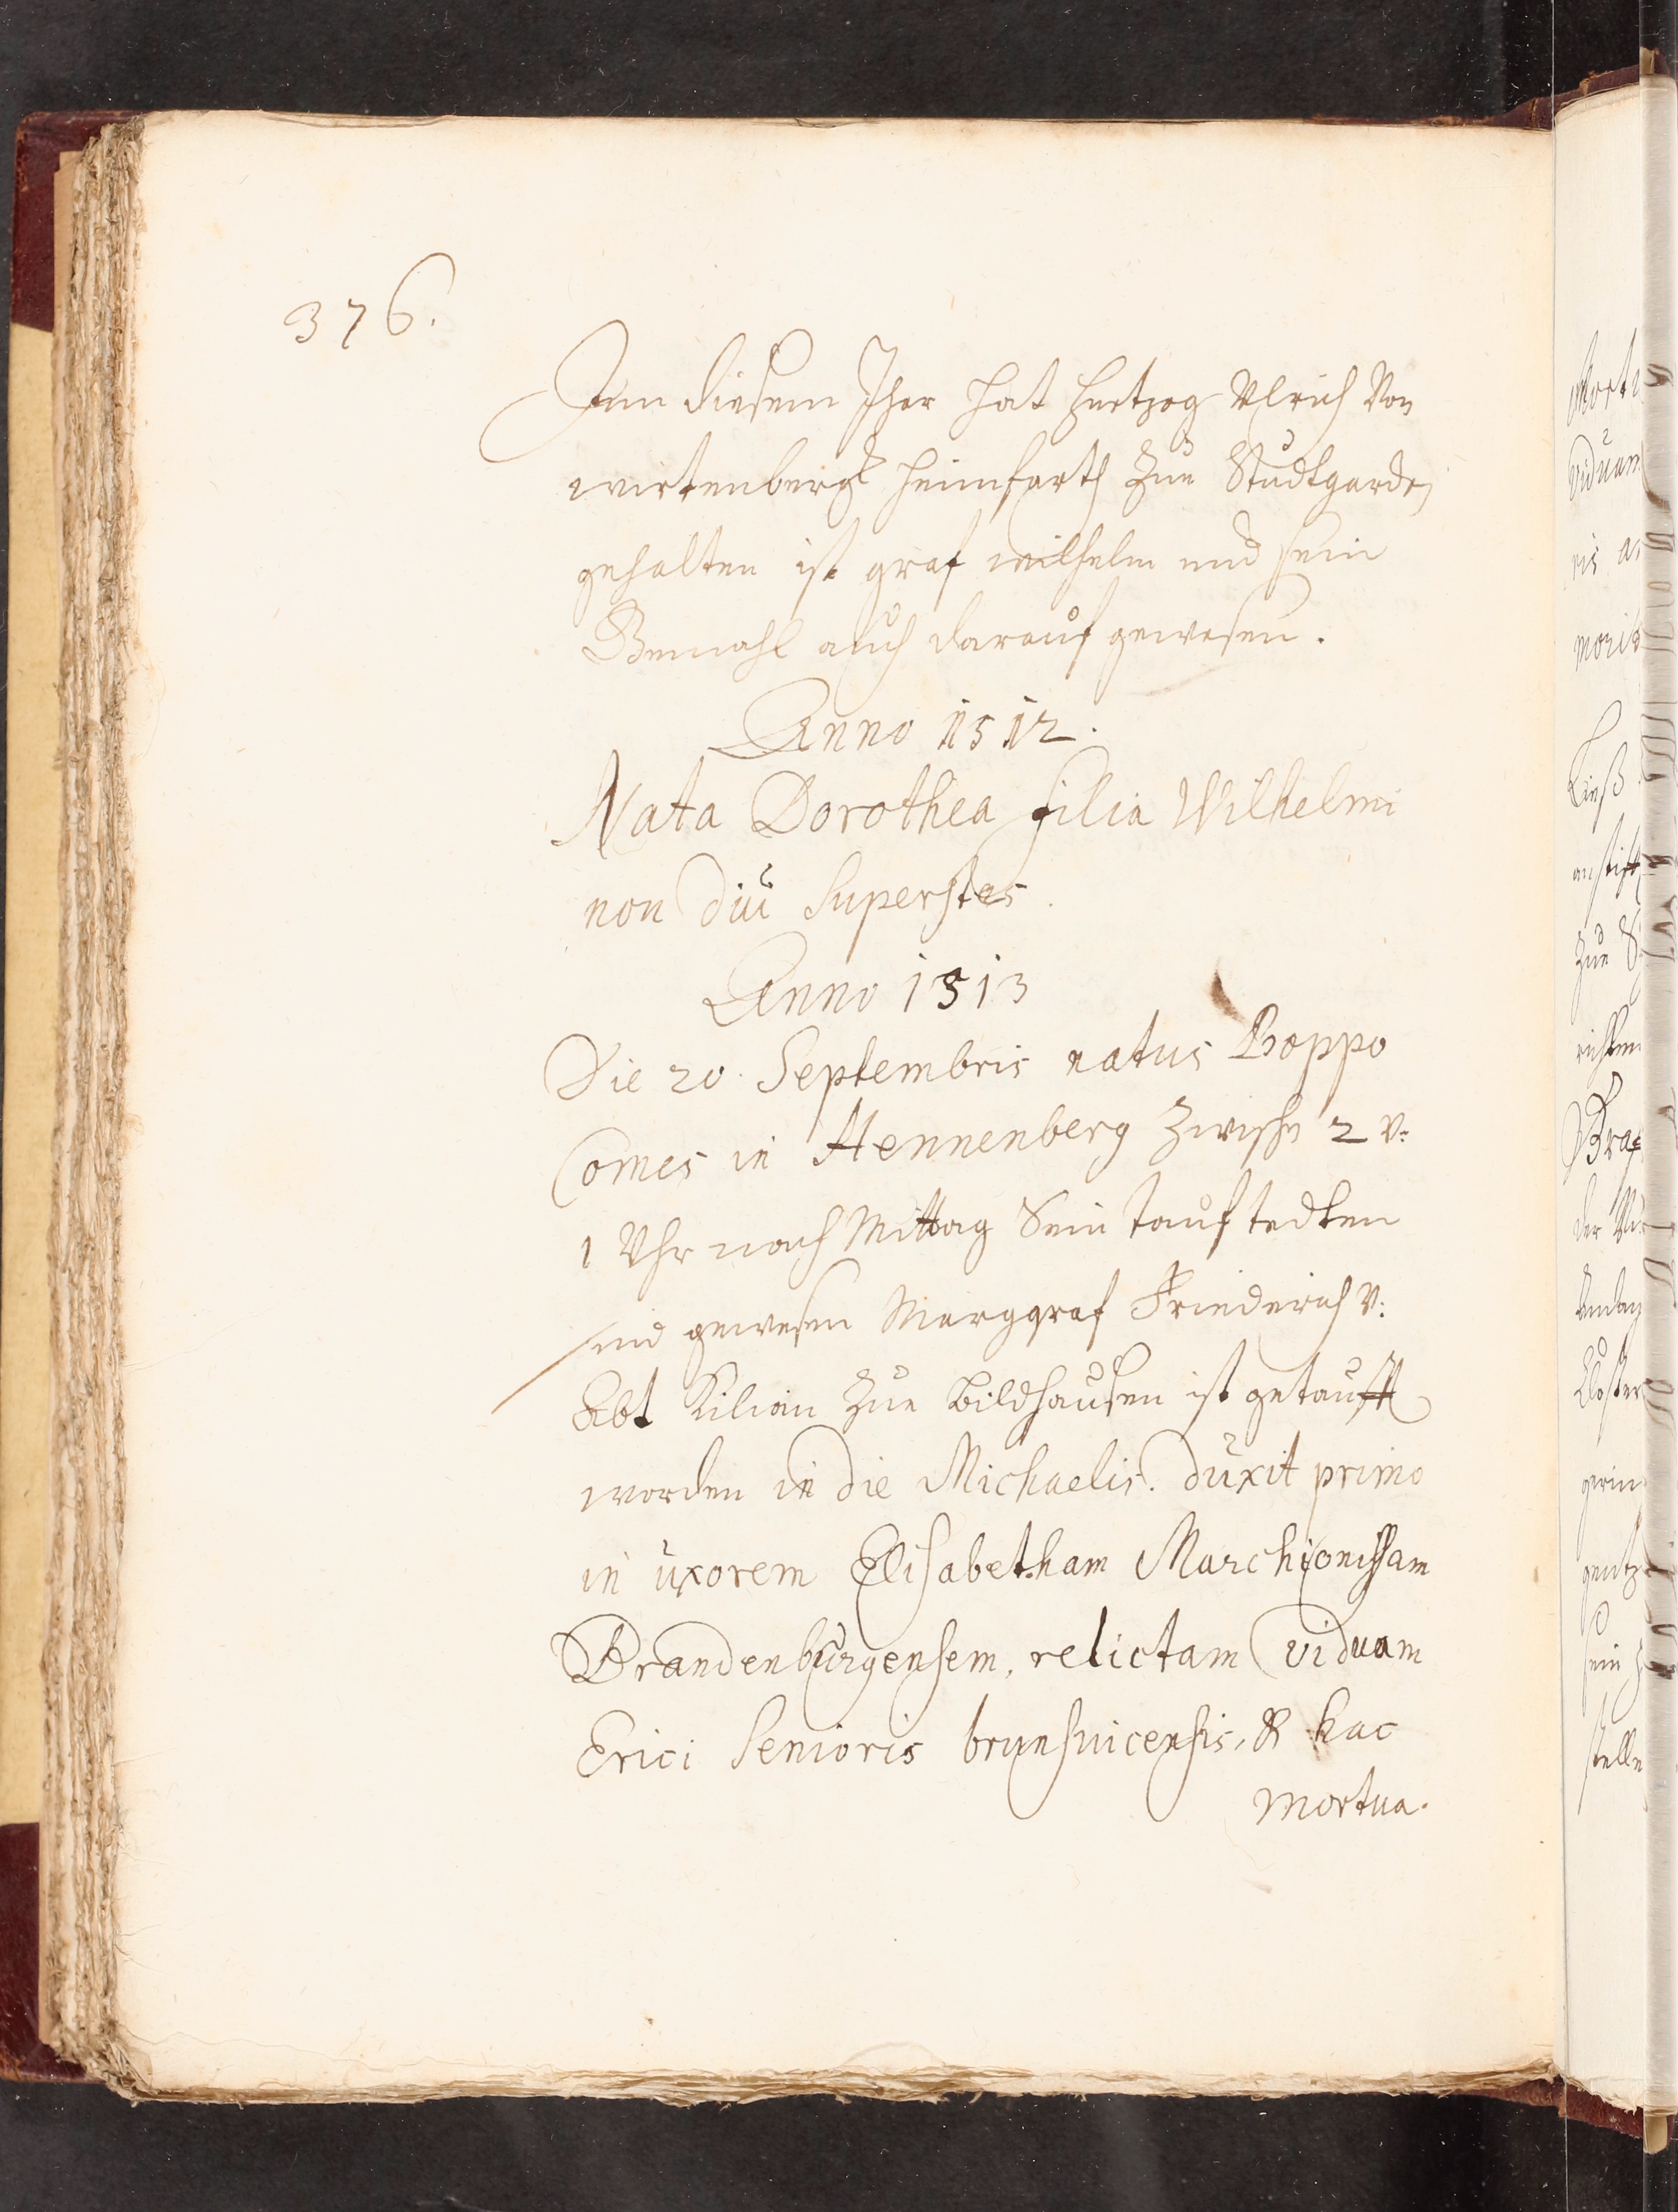 376.
Inn diesem Jhar hat Hertzog Vlrich Von
wirtenbergk heimfarth zue Studtgarden
gehalten ist graf wilhelm und sein
Gemahl auch darauf gewesen.
Anno 1512.
Nata Dorothea filia Wilhelmi
non diu Superstes.
Anno 1513
Die 20. Septembris natus Boppo
Comes in Hennenberg zwischn 2 v:
1 Vhr nach Mittag Sein tauf
sind gewesen Marggraf Friederich v:
Abt Kilian zue Bildhausen ist getaufft
worden in die Michaelis. duxit primo
in uxorem Elisabetham Marchionissam
Brandenburgensem, relictam viduam
Erici Senioris brunsuicensis, & hac
mortua.